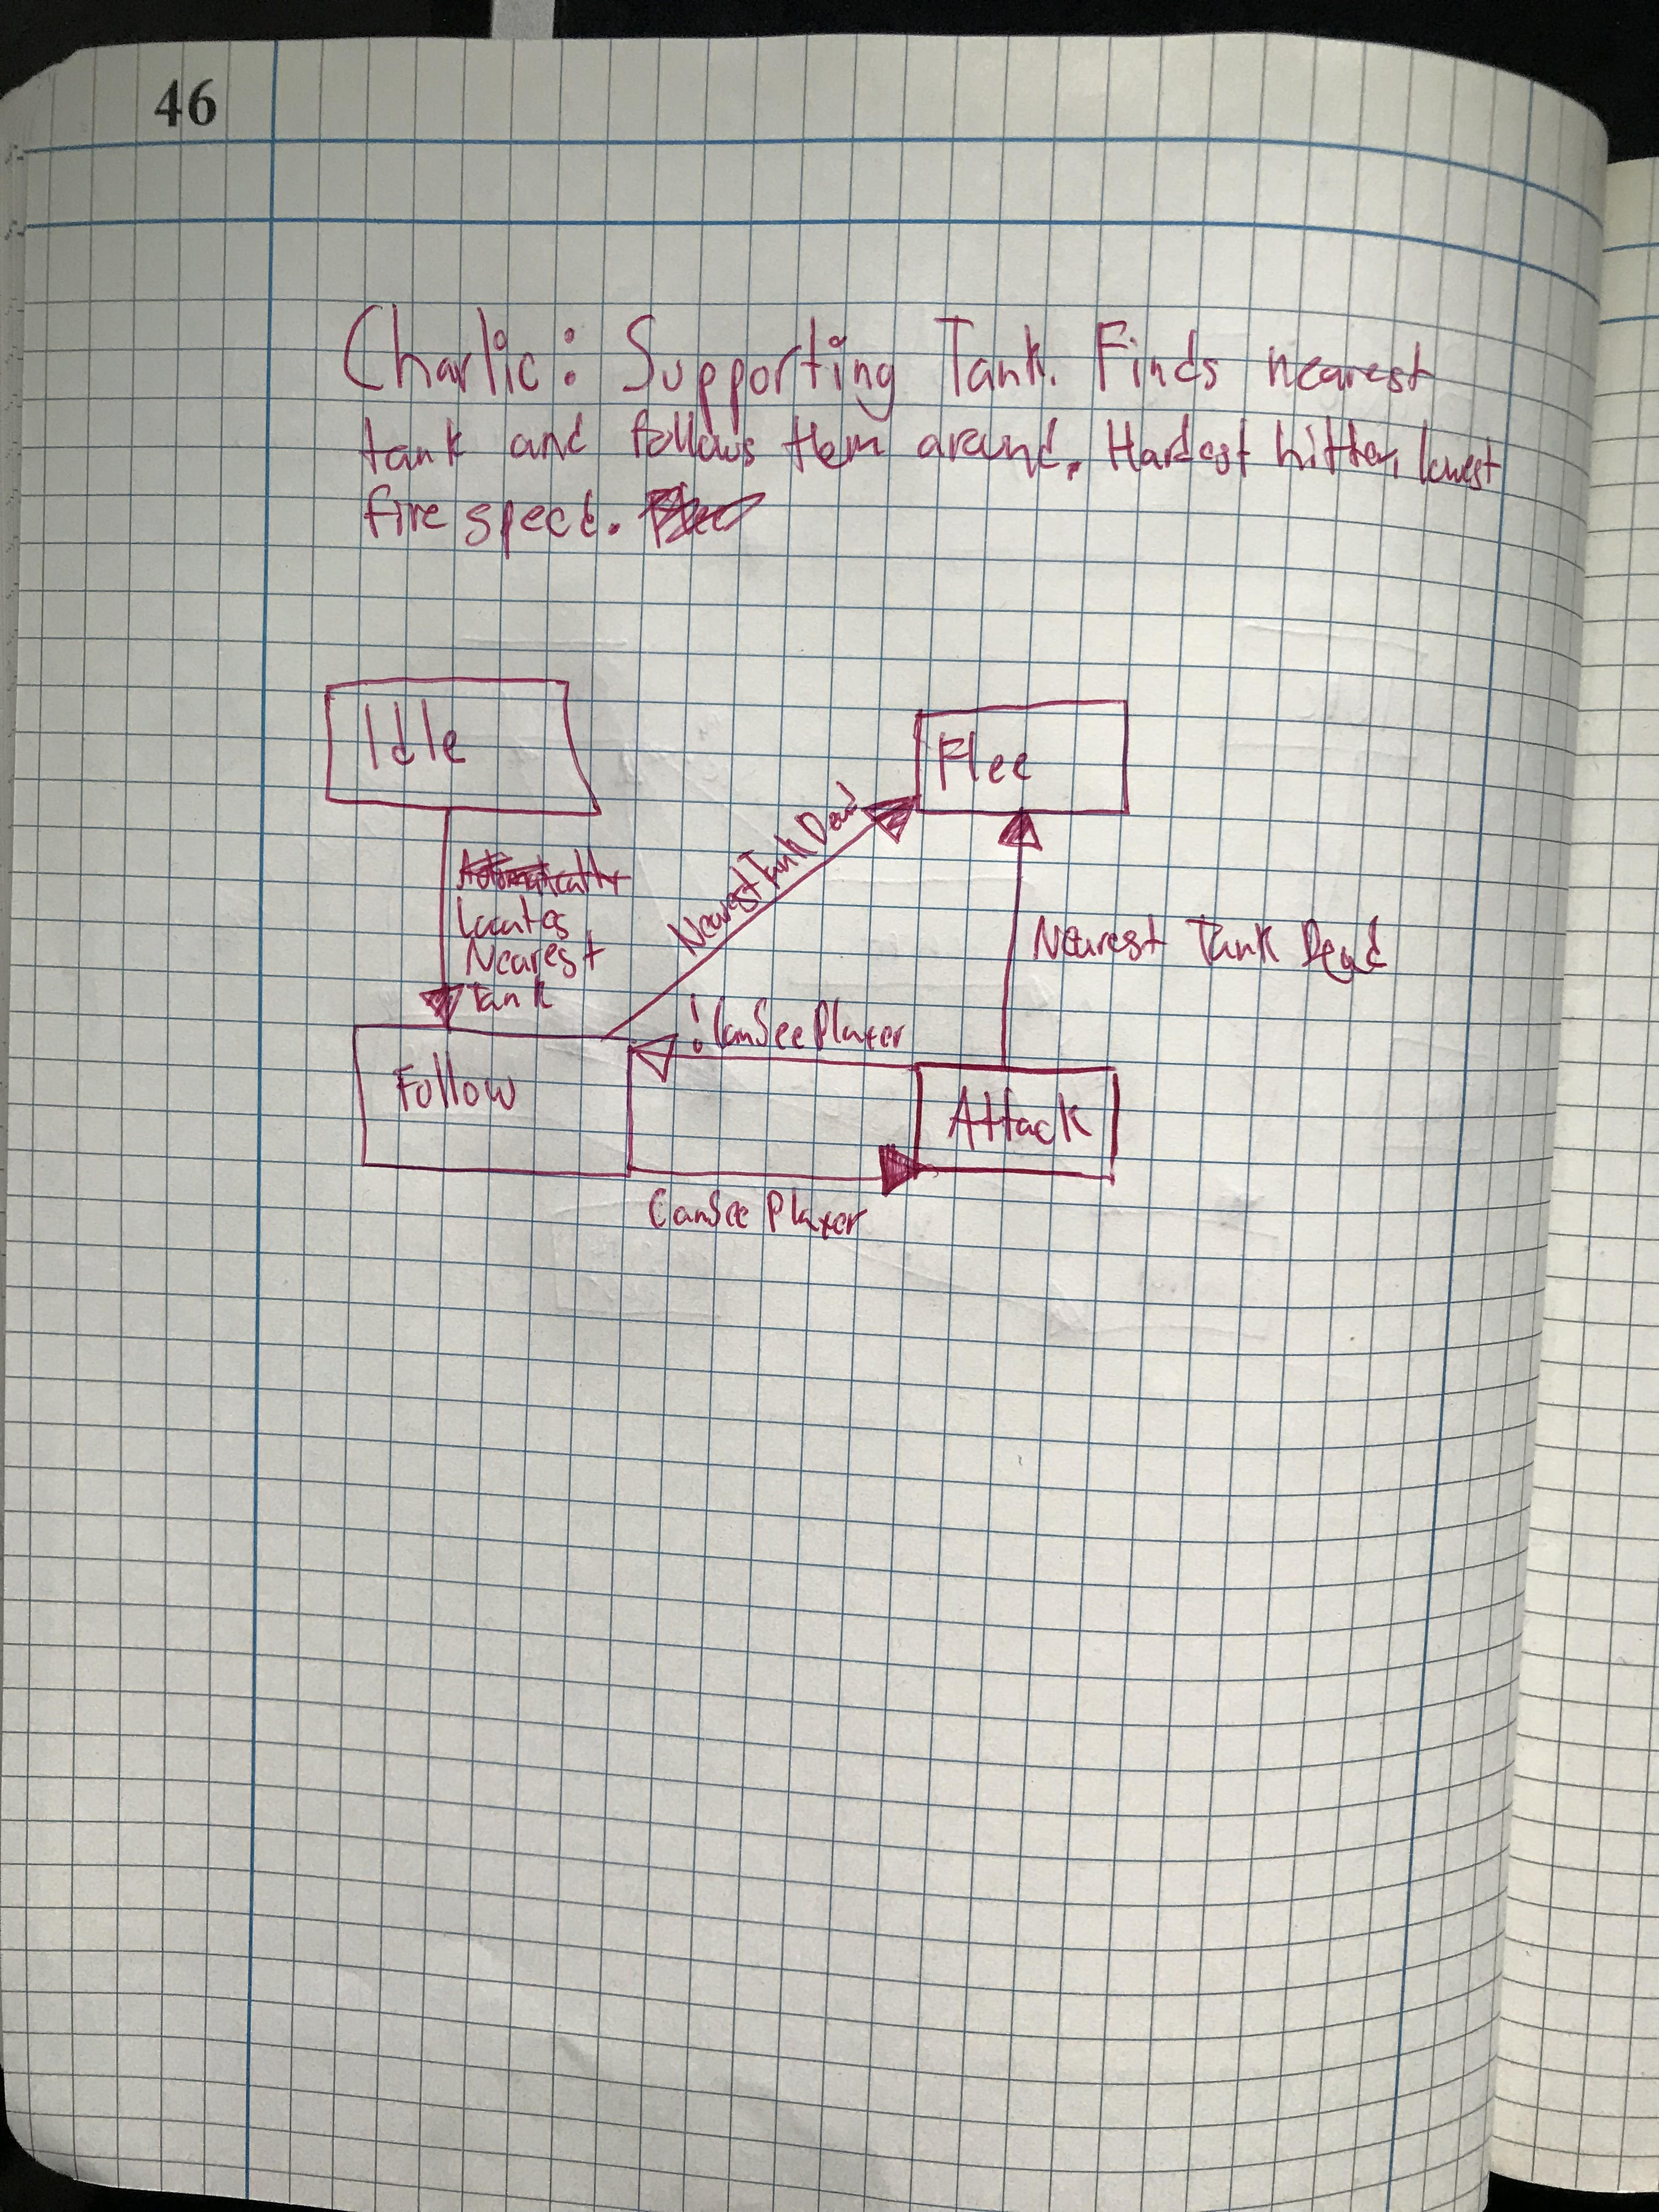 46
Charlie: Supporting Tank. Finds nearest
tank and follows them around. Hardest hitter, lowest
fire speed.
Idle
Flee
Automatically
Locates
Nearest
Tank
Nearest Tank Dead
Nearest Tank Dead
!CanSeePlayer
Follow
Attack
CanSee Player